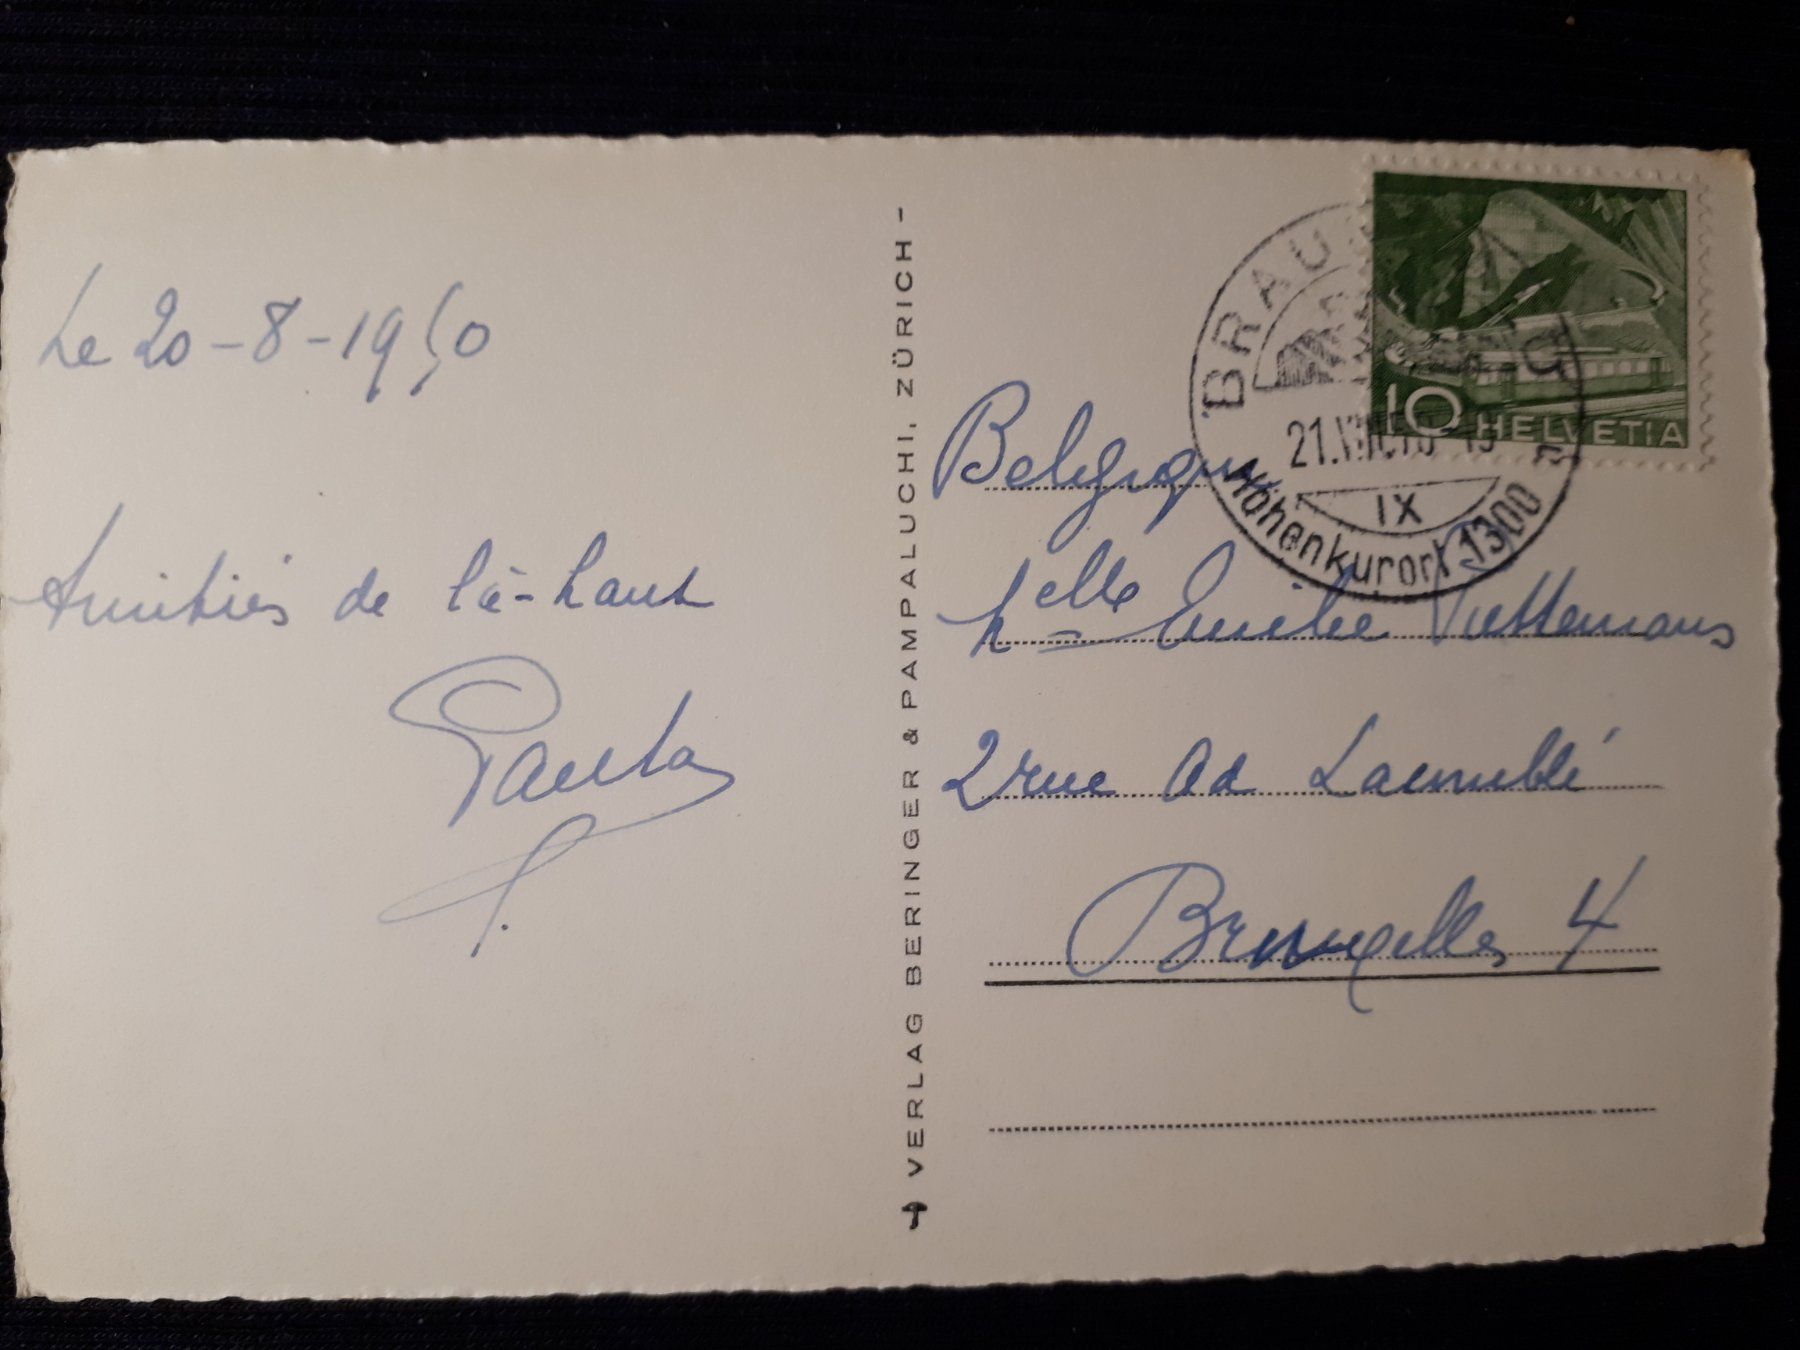 Le 20-8-1950
Amitiés de là-haut
Paula
VERLAG BERINGER & PAMPALUCHI, ZÜRICH -
BRAU
21.VIII.
IX
Höhenkurort 1300 m
10 HELVETIA
Belgique
Melle Emilie
2 rue Ad
Bruxelles 4